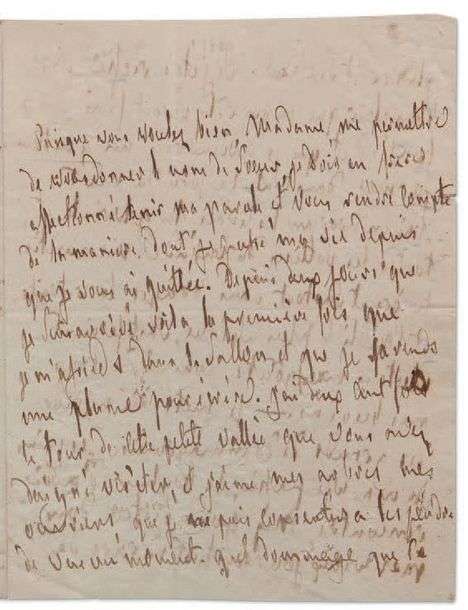 Puisque vous voulez bien Madame, me permettre
de vous donner le nom de Soeur, je dois en frère
affectionné tenir ma parole et vous rendre compte
de la manière dont je passe ma vie depuis
que je vous ai quittée. Depuis deux jours que
je suis voilà la première fois que
je m'assieds dans la vallée et que je prends
une plume pour écrire. J'ai deux cent fois
le tour de cette petite vallée que vous avez
daigné visiter, et j'aime mes arbres mes
que je ne puis consentir à les perdre
de vue un moment. quel dommage que le